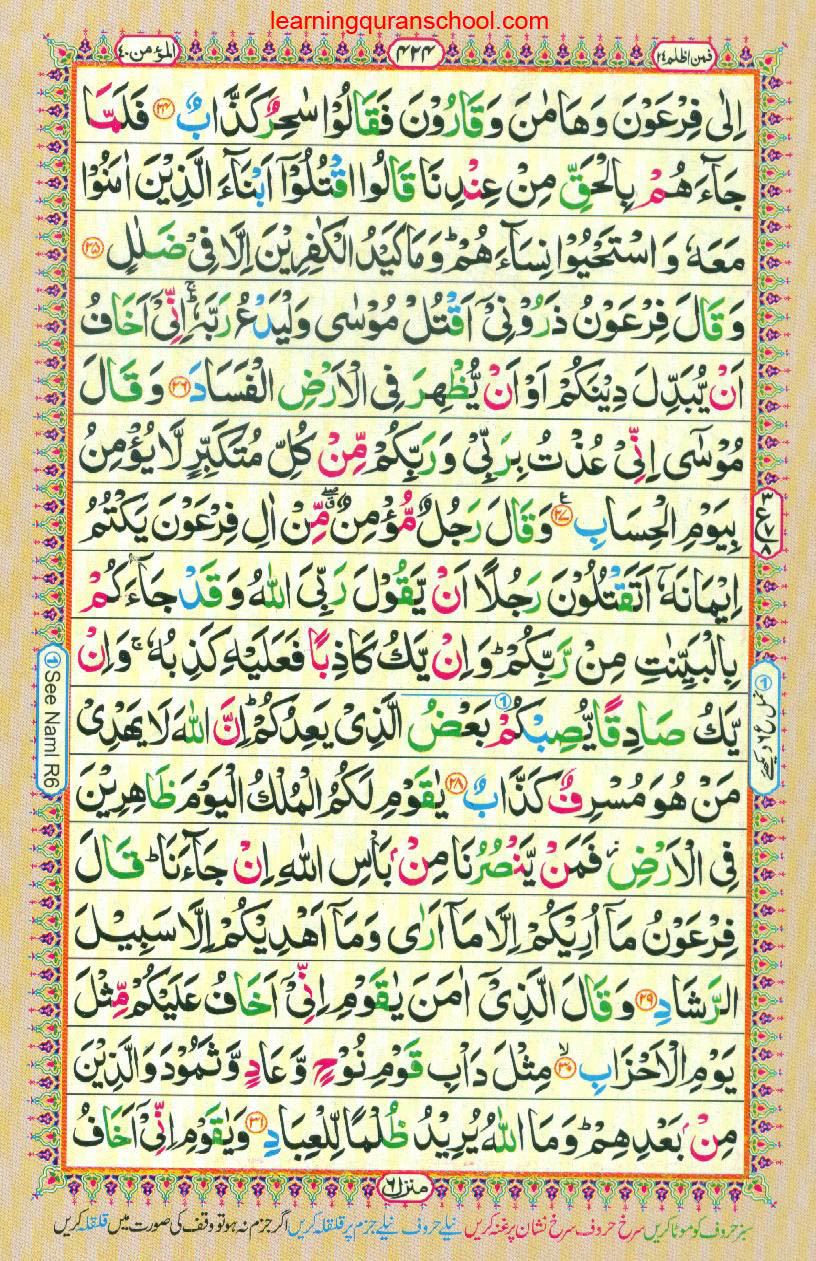 learningquranschool.com
فمن اظلم ۲۴
۴۲۴
المؤمن ۴۰
اِلٰى فِرْعَوْنَ وَهَامٰنَ وَقَارُوْنَ فَقَالُوْا سٰحِرٌ كَذَّابٌ ۲۴ فَلَمَّا
جَآءَهُمْ بِالْحَقِّ مِنْ عِنْدِنَا قَالُوا اقْتُلُوْٓا اَبْنَآءَ الَّذِيْنَ اٰمَنُوْا
مَعَهٗ وَاسْتَحْيُوْا نِسَآءَهُمْ ؕ وَمَا كَيْدُ الْكٰفِرِيْنَ اِلَّا فِيْ ضَلٰلٍ ۲۵
وَقَالَ فِرْعَوْنُ ذَرُوْنِيْٓ اَقْتُلْ مُوْسٰى وَلْيَدْعُ رَبَّهٗ ۚ اِنِّيْٓ اَخَافُ
اَنْ يُّبَدِّلَ دِيْنَكُمْ اَوْ اَنْ يُّظْهِرَ فِى الْاَرْضِ الْفَسَادَ ۲۶ وَقَالَ
مُوْسٰٓى اِنِّيْ عُذْتُ بِرَبِّيْ وَرَبِّكُمْ مِّنْ كُلِّ مُتَكَبِّرٍ لَّا يُؤْمِنُ
بِيَوْمِ الْحِسَابِ ۲۷ ع وَقَالَ رَجُلٌ مُّؤْمِنٌ ۖ مِّنْ اٰلِ فِرْعَوْنَ يَكْتُمُ
اِيْمَانَهٗٓ اَتَقْتُلُوْنَ رَجُلًا اَنْ يَّقُوْلَ رَبِّيَ اللّٰهُ وَقَدْ جَآءَكُمْ
بِالْبَيِّنٰتِ مِنْ رَّبِّكُمْ ؕ وَاِنْ يَّكُ كَاذِبًا فَعَلَيْهِ كَذِبُهٗ ۚ وَاِنْ
يَّكُ صَادِقًا يُّصِبْكُمْ ① بَعْضُ الَّذِيْ يَعِدُكُمْ ؕ اِنَّ اللّٰهَ لَا يَهْدِيْ
① See Naml R6
مَنْ هُوَ مُسْرِفٌ كَذَّابٌ ۲۸ يٰقَوْمِ لَكُمُ الْمُلْكُ الْيَوْمَ ظَاهِرِيْنَ
فِى الْاَرْضِ ؗ فَمَنْ يَّنْصُرُنَا مِنْۢ بَاْسِ اللّٰهِ اِنْ جَآءَنَا ؕ قَالَ
فِرْعَوْنُ مَآ اُرِيْكُمْ اِلَّا مَآ اَرٰى وَمَآ اَهْدِيْكُمْ اِلَّا سَبِيْلَ
الرَّشَادِ ۲۹ وَقَالَ الَّذِيْٓ اٰمَنَ يٰقَوْمِ اِنِّيْٓ اَخَافُ عَلَيْكُمْ مِّثْلَ
يَوْمِ الْاَحْزَابِ ۙ ۳۰ مِثْلَ دَاْبِ قَوْمِ نُوْحٍ وَّعَادٍ وَّثَمُوْدَ وَالَّذِيْنَ
مِنْۢ بَعْدِهِمْ ؕ وَمَا اللّٰهُ يُرِيْدُ ظُلْمًا لِّلْعِبَادِ ۳۱ وَيٰقَوْمِ اِنِّيْٓ اَخَافُ
منزل ۶
سبز حروف کو موٹا کریں سرخ حروف سرخ نشان پر غنہ کریں نیلے حروف نیلے جزم پر قلقلہ کریں اگر جزم نہ ہو تو وقف کی صورت میں قلقلہ کریں